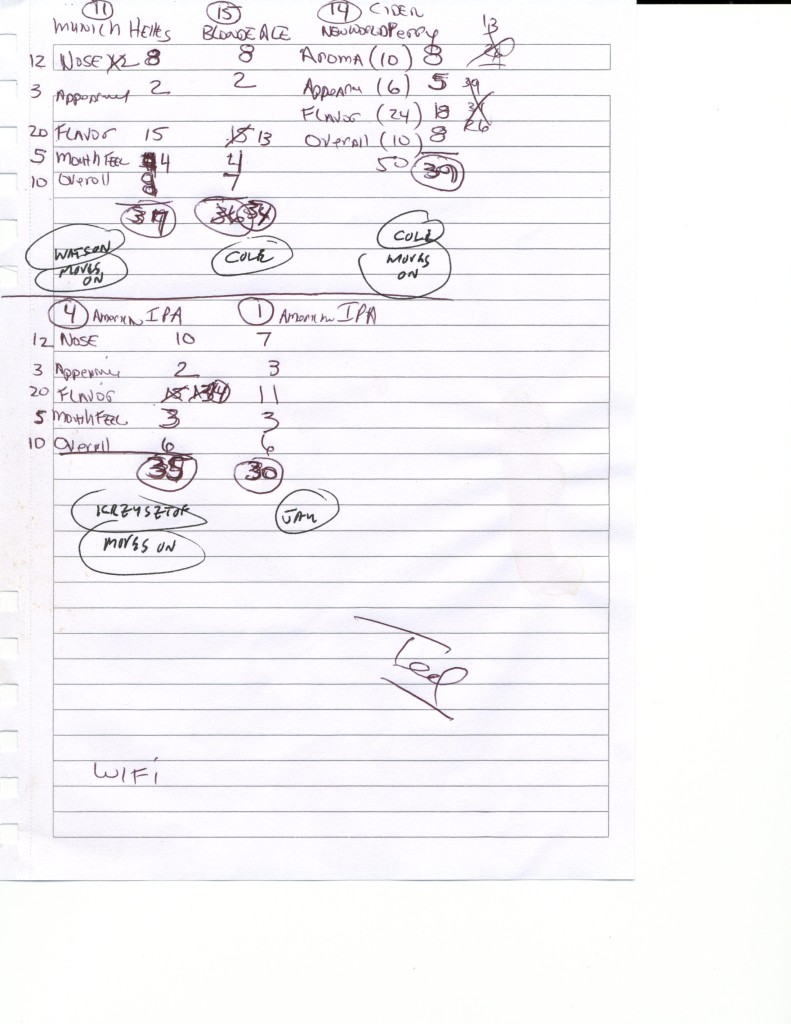 11 15 14 CIDER
MUNICH Helles BLONDE ALE NEW WORLD Perry 13
12 NOSE 8 8 AROMA (10) 8
3 Appearance 2 2 Appearn (6) 5 39
FLAVOR (24) 18
20 FLAVOR 15 13 Overall (10) 8 26
5 Mouth Feel 4 4 50 39
10 Overall 8 7
37 34
WATSON COLE COLE
MOVES ON MOVES ON
4 American IPA 1 American IPA
12 NOSE 10 7
3 Appearance 2 3
20 FLAVOR 14 11
5 Mouth Feel 3 3
10 Overall 6 6
35 30
KRZYSZTOF JAK
MOVES ON
WIFi